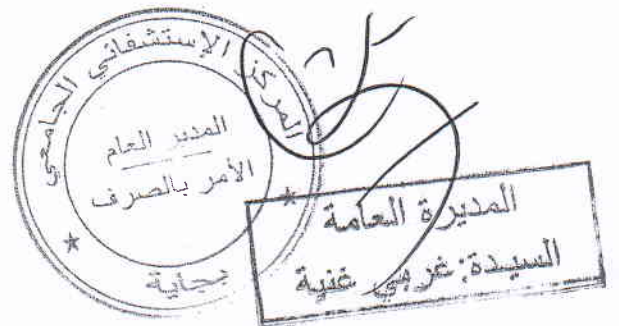 المركز الإستشفائي الجامعي
المدير العام
الأمر بالصرف
بجاية
المديرة العامة
السيدة: غربي غنية